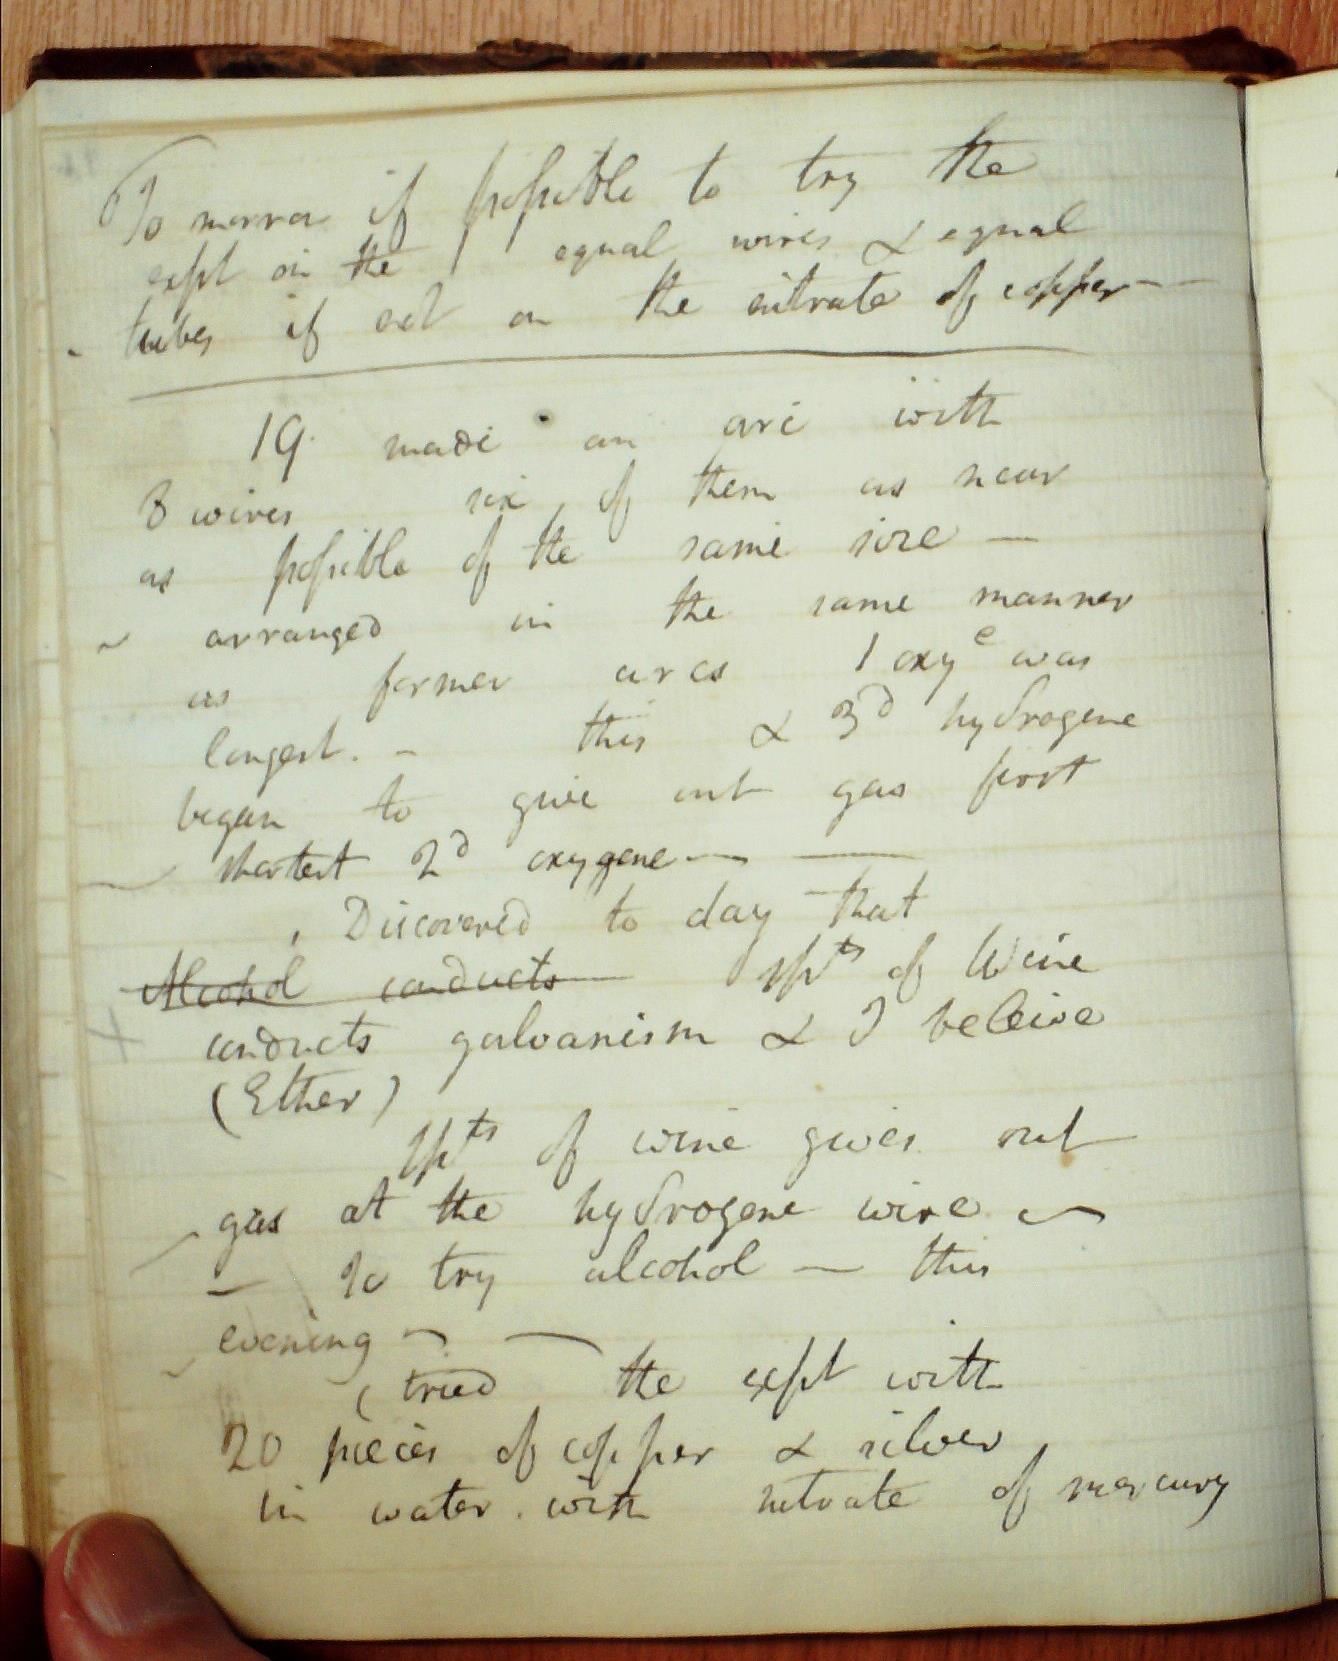 To morrow if possible to try the
expt on the equal wires & equal
tubes if not on the nitrate of copper —
19 made an arc with
8 wires six of them as near
as possible of the same size —
arranged in the same manner
as former arcs 1 oxye was
longest. - this & 3d hydrogene
began to give out gas first
shortest 2d oxygene — —
Discovered to day that
Alcohol conducts spts of Wine
conducts galvanism & I beleive
(Ether)
spts of wine gives out
gas at the hydrogene wire —
— To try alcohol — this
evening — —
(tried the expt with
20 pieces of copper & silver
in water with nitrate of mercury